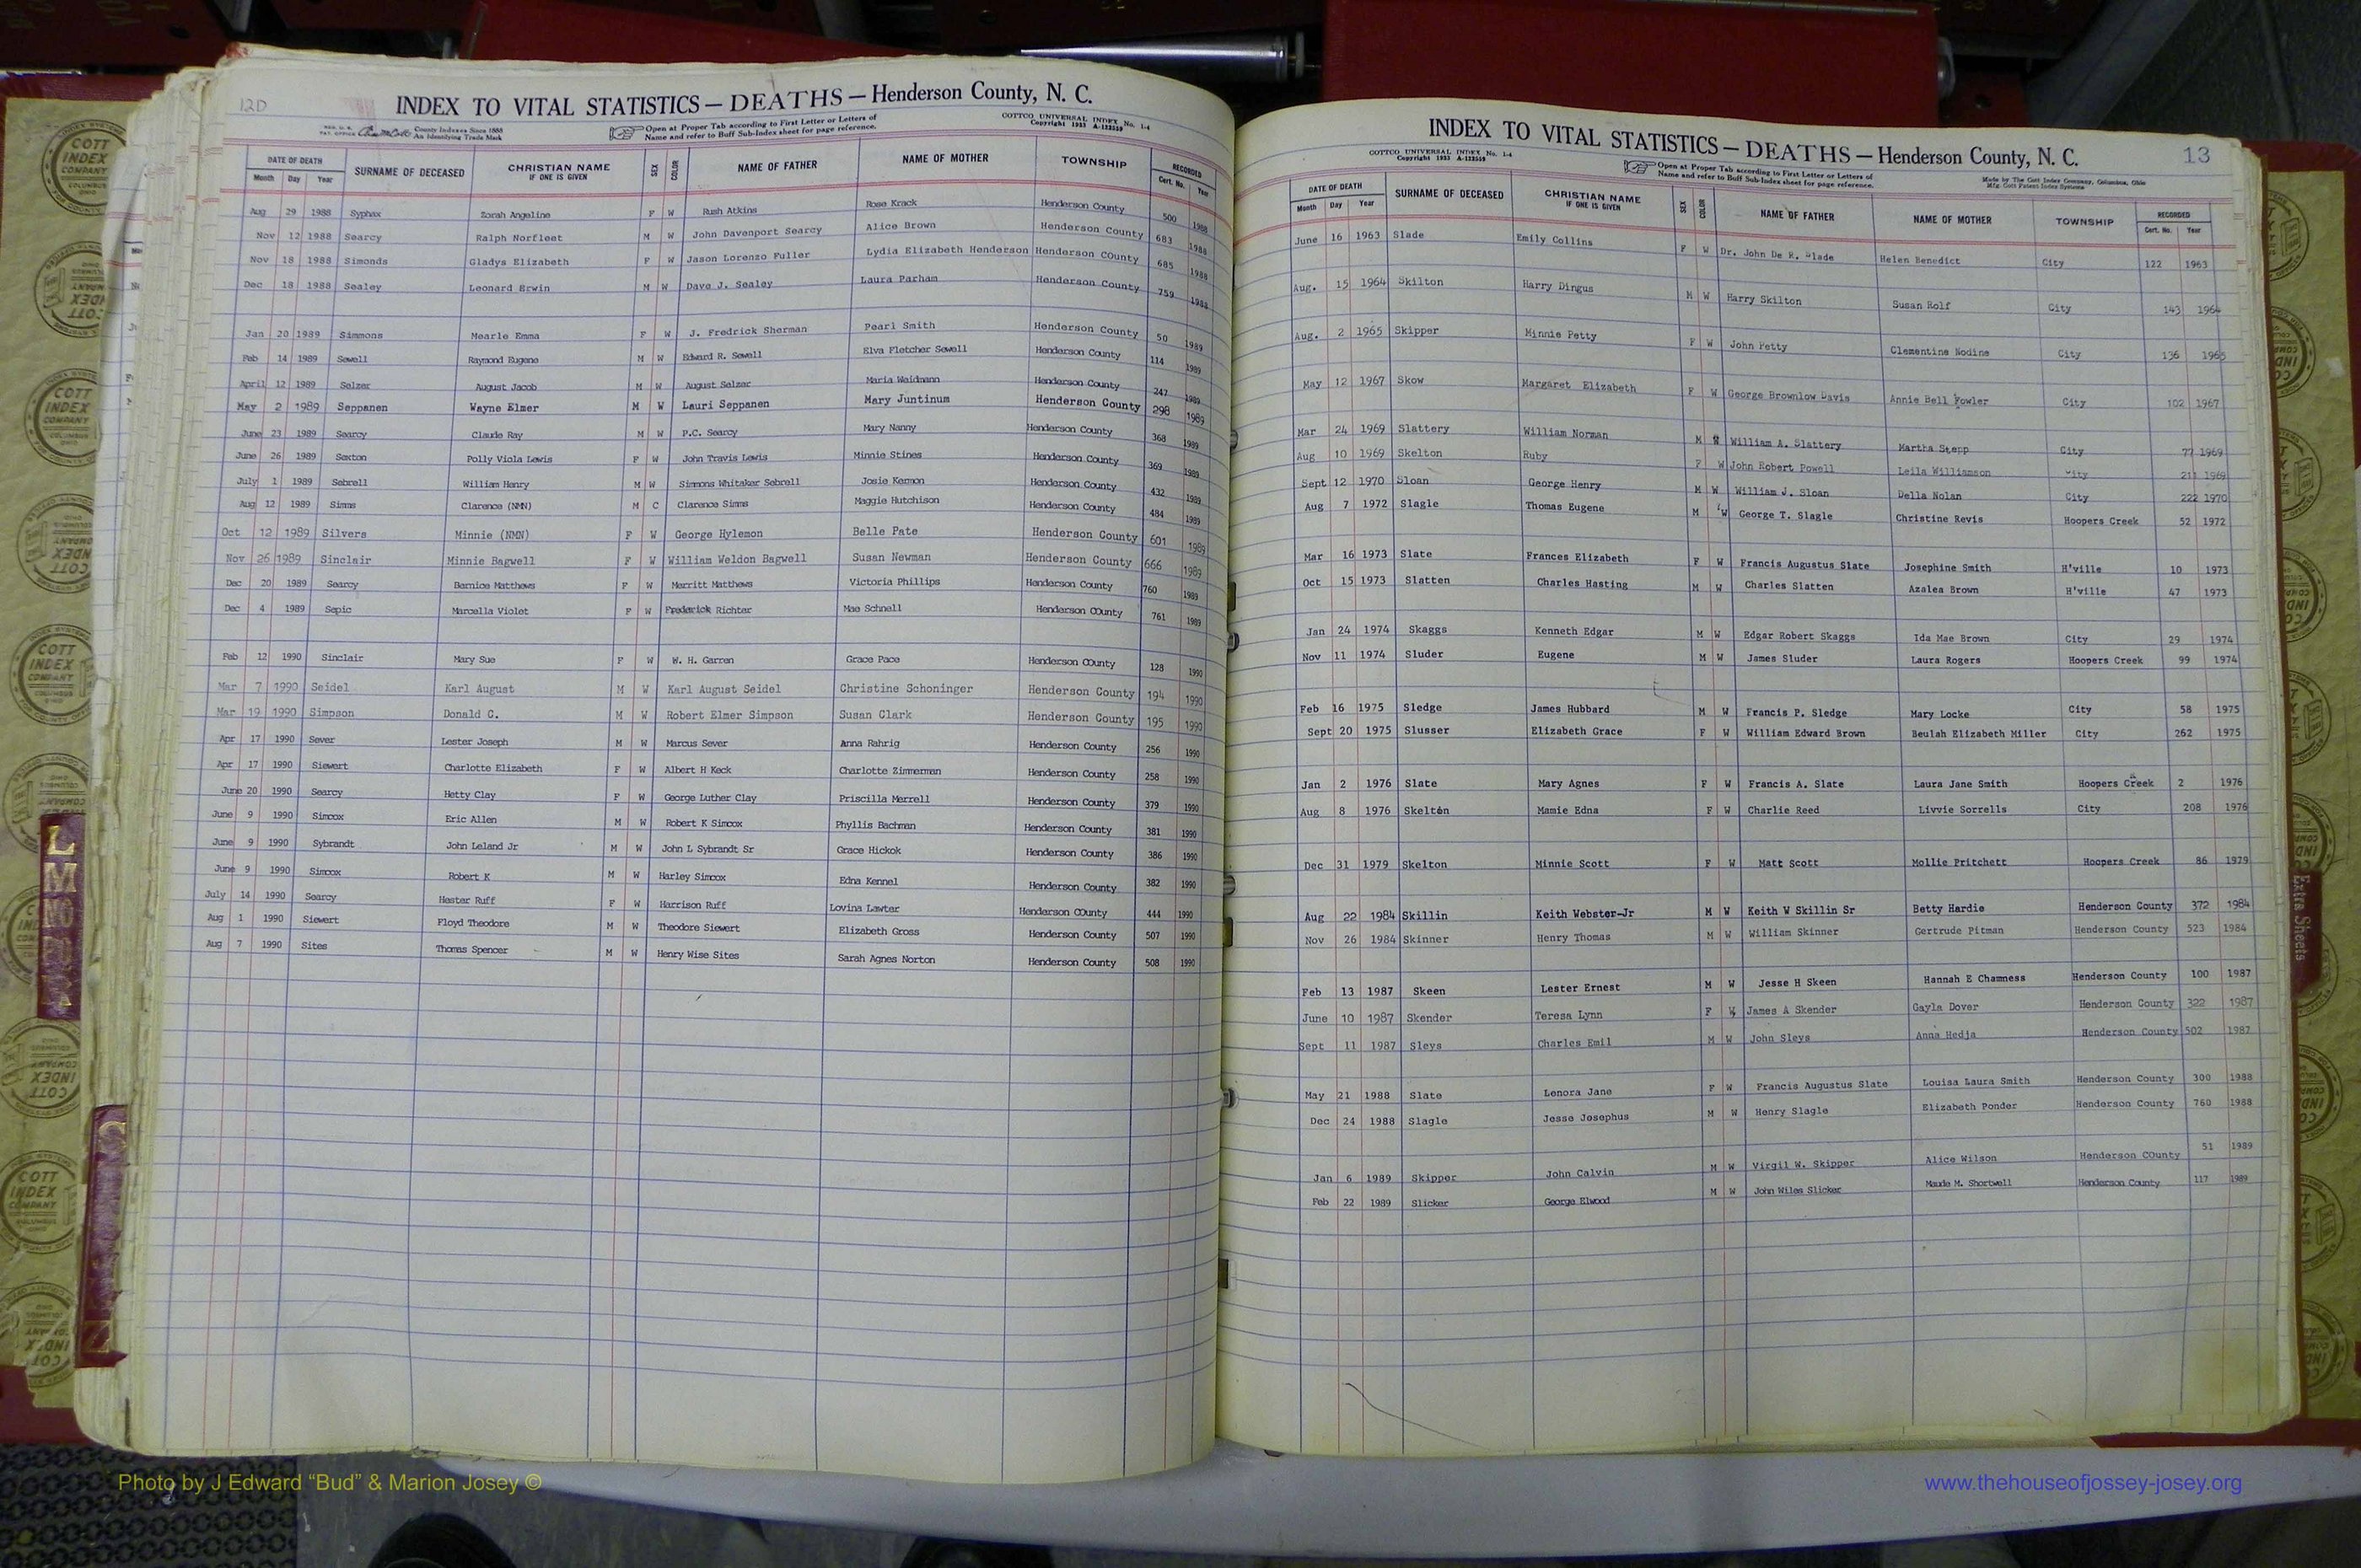 12D
INDEX TO VITAL STATISTICS — DEATHS — Henderson County, N. C.
County Indexes Since 1888
An Identifying Trade Mark
Open at Proper Tab according to First Letter or Letters of
Name and refer to Buff Sub-Index sheet for page reference.
COTTCO UNIVERSAL INDEX No. 1-4
Copyright 1933 A-112559
DATE OF DEATH SURNAME OF DECEASED CHRISTIAN NAME IF ONE IS GIVEN SEX COLOR NAME OF FATHER NAME OF MOTHER TOWNSHIP RECORDED
Month Day Year Cert. No. Year
Aug 29 1988 Syphax Sorah Angeline F W Rush Atkins Rose Krack Henderson County 500 1988
Nov 12 1988 Searcy Ralph Norfleet M W John Davenport Searcy Alice Brown Henderson County 683 1988
Nov 18 1988 Simonds Gladys Elizabeth F W Jason Lorenzo Fuller Lydia Elizabeth Henderson Henderson COunty 685 1988
Dec 18 1988 Sealey Leonard Erwin M W Dave J. Sealey Laura Parham Henderson County 759 1988
Jan 20 1989 Simmons Mearle Emma F W J. Fredrick Sherman Pearl Smith Henderson County 50 1989
Feb 14 1989 Sewell Raymond Eugene M W Edward R. Sewell Elva Fletcher Sewell Henderson County 114 1989
April 12 1989 Selzer August Jacob M W August Selzer Maria Weidmann Henderson County 247 1989
May 2 1989 Seppanen Wayne Elmer M W Lauri Seppanen Mary Juntinum Henderson County 298 1989
June 23 1989 Searcy Claude Ray M W P.C. Searcy Mary Nanny Henderson County 368 1989
June 26 1989 Sexton Polly Viola Lewis F W John Travis Lewis Minnie Stines Henderson County 369 1989
July 1 1989 Sebrell William Henry M W Simmons Whitaker Sebrell Josie Kermon Henderson County 432 1989
Aug 12 1989 Simms Clarence (NMN) M C Clarence Simms Maggie Hutchison Henderson County 484 1989
Oct 12 1989 Silvers Minnie (NMN) F W George Hylemon Belle Pate Henderson County 601 1989
Nov 26 1989 Sinclair Minnie Bagwell F W William Weldon Bagwell Susan Newman Henderson County 666 1989
Dec 20 1989 Searcy Bernice Matthews F W Merritt Matthews Victoria Phillips Henderson County 760 1989
Dec 4 1989 Sepic Marcella Violet F W Frederick Richter Mae Schnell Henderson COunty 761 1989
Feb 12 1990 Sinclair Mary Sue F W W. H. Garren Grace Pace Henderson COunty 128 1990
Mar 7 1990 Seidel Karl August M W Karl August Seidel Christine Schoninger Henderson County 194 1990
Mar 19 1990 Simpson Donald C. M W Robert Elmer Simpson Susan Clark Henderson County 195 1990
Apr 17 1990 Sever Lester Joseph M W Marcus Sever Anna Rahrig Henderson County 256 1990
Apr 17 1990 Siewert Charlotte Elizabeth F W Albert H Keck Charlotte Zimmerman Henderson County 258 1990
June 20 1990 Searcy Hetty Clay F W George Luther Clay Priscilla Merrell Henderson County 379 1990
June 9 1990 Simcox Eric Allen M W Robert K Simcox Phyllis Bachman Henderson County 381 1990
June 9 1990 Sybrandt John Leland Jr M W John L Sybrandt Sr Grace Hickok Henderson County 386 1990
June 9 1990 Simcox Robert K M W Harley Simcox Edna Kennel Henderson County 382 1990
July 14 1990 Searcy Hester Ruff F W Harrison Ruff Lovina Lawter Henderson COunty 444 1990
Aug 1 1990 Siewert Floyd Theodore M W Theodore Siewert Elizabeth Gross Henderson County 507 1990
Aug 7 1990 Sites Thomas Spencer M W Henry Wise Sites Sarah Agnes Norton Henderson County 508 1990
INDEX TO VITAL STATISTICS — DEATHS — Henderson County, N. C. 13
COTTCO UNIVERSAL INDEX No. 1-4
Copyright 1933 A-112559
Open at Proper Tab according to First Letter or Letters of
Name and refer to Buff Sub-Index sheet for page reference.
Made by The Cott Index Company, Columbus, Ohio
Mfg. Cott Patent Index Systems
DATE OF DEATH SURNAME OF DECEASED CHRISTIAN NAME IF ONE IS GIVEN SEX COLOR NAME OF FATHER NAME OF MOTHER TOWNSHIP RECORDED
Month Day Year Cert. No. Year
June 16 1963 Slade Emily Collins F W Dr. John De R. Slade Helen Benedict City 122 1963
Aug. 15 1964 Skilton Harry Dingus M W Harry Skilton Susan Rolf City 143 1964
Aug. 2 1965 Skipper Minnie Petty F W John Petty Clementine Nodine City 136 1965
May 12 1967 Skow Margaret Elizabeth F W George Brownlow Davis Annie Bell Fowler City 102 1967
Mar 24 1969 Slattery William Norman M W William A. Slattery Martha Stepp City 77 1969
Aug 10 1969 Skelton Ruby F W John Robert Powell Leila Williamson City 211 1969
Sept 12 1970 Sloan George Henry M W William J. Sloan Della Nolan City 222 1970
Aug 7 1972 Slagle Thomas Eugene M W George T. Slagle Christine Revis Hoopers Creek 52 1972
Mar 16 1973 Slate Frances Elizabeth F W Francis Augustus Slate Josephine Smith H'ville 10 1973
Oct 15 1973 Slatten Charles Hasting M W Charles Slatten Azalea Brown H'ville 47 1973
Jan 24 1974 Skaggs Kenneth Edgar M W Edgar Robert Skaggs Ida Mae Brown City 29 1974
Nov 11 1974 Sluder Eugene M W James Sluder Laura Rogers Hoopers Creek 99 1974
Feb 16 1975 Sledge James Hubbard M W Francis P. Sledge Mary Locke City 58 1975
Sept 20 1975 Slusser Elizabeth Grace F W William Edward Brown Beulah Elizabeth Miller City 262 1975
Jan 2 1976 Slate Mary Agnes F W Francis A. Slate Laura Jane Smith Hoopers Creek 2 1976
Aug 8 1976 Skelton Mamie Edna F W Charlie Reed Livvie Sorrells City 208 1976
Dec 31 1979 Skelton Minnie Scott F W Matt Scott Mollie Pritchett Hoopers Creek 86 1979
Aug 22 1984 Skillin Keith Webster-Jr M W Keith W Skillin Sr Betty Hardie Henderson County 372 1984
Nov 26 1984 Skinner Henry Thomas M W William Skinner Gertrude Pitman Henderson County 523 1984
Feb 13 1987 Skeen Lester Ernest M W Jesse H Skeen Hannah E Chamness Henderson County 100 1987
June 10 1987 Skender Teresa Lynn F W James A Skender Gayla Dover Henderson County 322 1987
Sept 11 1987 Sleys Charles Emil M W John Sleys Anna Hedja Henderson County 502 1987
May 21 1988 Slate Lenora Jane F W Francis Augustus Slate Louisa Laura Smith Henderson County 300 1988
Dec 24 1988 Slagle Jesse Josephus M W Henry Slagle Elizabeth Ponder Henderson County 760 1988
Jan 6 1989 Skipper John Calvin M W Virgil W. Skipper Alice Wilson Henderson COunty 51 1989
Feb 22 1989 Slicker George Elwood M W John Wiles Slicker Maude M. Shortwell Henderson County 117 1989
COTT INDEX COMPANY COLUMBUS OHIO
L M
Extra Sheets
Photo by J Edward “Bud” & Marion Josey ©
www.thehouseofjossey-josey.org